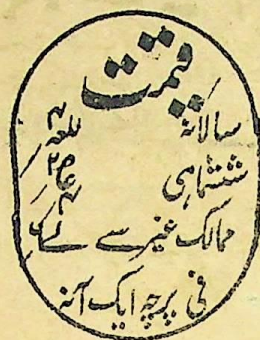 قیمت
سالانہ للعہ
ششماہی
ممالک غیر سے
فی پرچہ ایک آنہ